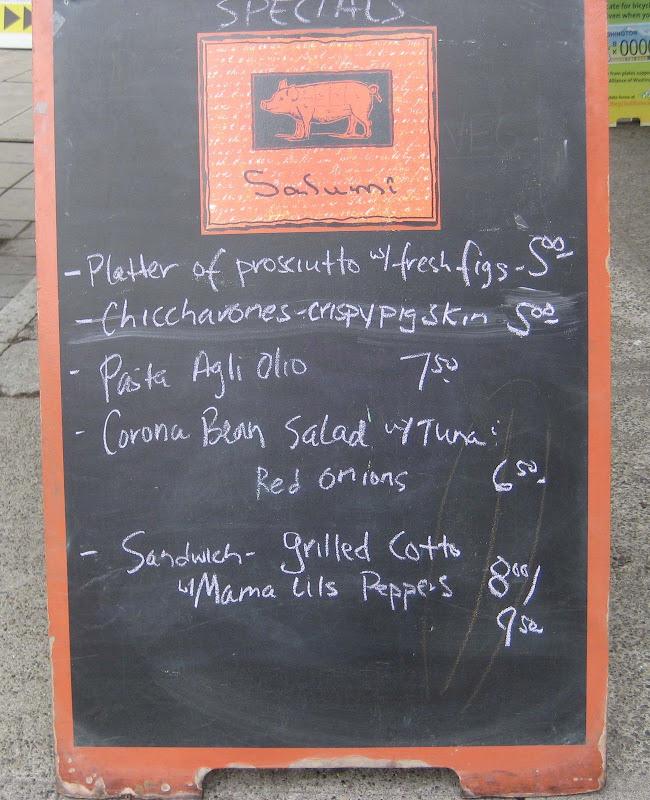 SPECIALS
Salumi
- Platter of prosciutto w/ fresh figs - 5.00
- Chiccharones - crispy pig skin 5.00
- Pasta Agli Olio 7.50
- Corona Bean Salad w/ Tuna &
Red onions 6.50
- Sandwich - grilled Cotto
w/ Mama Lils Peppers 8.00/
9.50
cate for bicycl
ven when you
HINGTON
0000